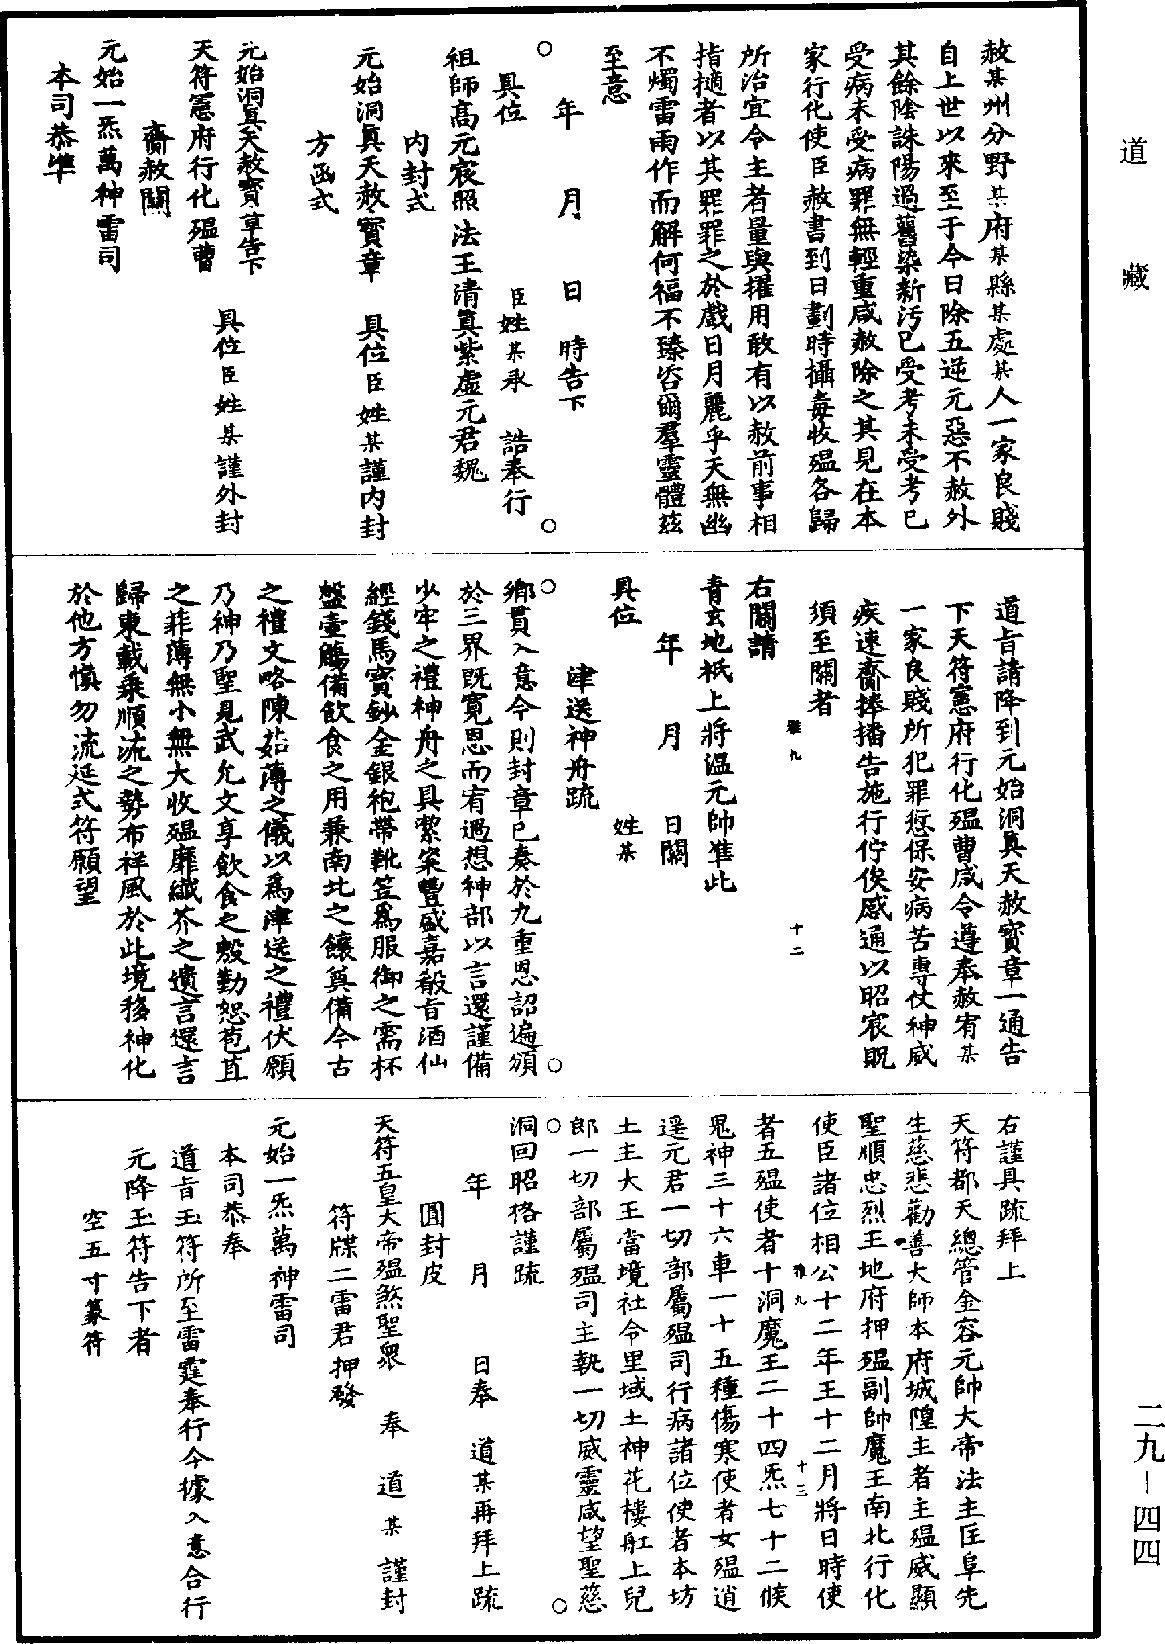 道藏
赦某州分野某府某縣某處某人一家良賤
自上世以來至于今日除五逆元惡不赦外
其餘陰誅陽過舊染新污已受考未受考已
受病未受病罪無輕重咸赦除之其見在本
家行化使臣赦書到日劃時攝毒收瘟各歸
所治宜令主者量與擢用敢有以赦前事相
指擿者以其罪罪之於戲日月麗乎天無幽
不燭雷雨作而解何福不臻咨爾羣靈體兹
至意
年　月　日　時告下
具位　臣姓某承　誥奉行
祖師高元宸照法王清真紫虛元君魏
内封式
元始洞真天赦寳章　具位臣姓某謹内封
方函式
元始洞真天赦寳章告下
天符憲府行化瘟曹　具位臣姓某謹外封
齎赦關
元始一炁萬神雷司
本司恭準
道旨請降到元始洞真天赦寳章一通告
下天符憲府行化瘟曹咸令遵奉赦宥某
一家良賤所犯罪愆保安病苦專仗神威
疾速齎捧播告施行佇俟感通以昭宸貺
須至關者
雅九　十二
右關請
青玄地祇上將溫元帥準此
年　月　日關
具位　姓某
津送神舟疏
鄉貫入意今則封章已奏於九重恩詔遍頒
於三界既寬恩而宥過想神部以言還謹備
少牢之禮神舟之具潔粢豐盛嘉殽旨酒仙
經錢馬寳鈔金銀袍帶靴笠爲服御之需杯
盤壷觴備飲食之用兼南北之饟奠備今古
之禮文略陳菇薄之儀以爲津送之禮伏願
乃神乃聖見武允文享飲食之慇勤恕苞苴
之菲薄無小無大收瘟靡纖芥之遺言還言
歸東載乘順流之勢布祥風於此境移神化
於他方慎勿流延式符願望
右謹具疏拜上
天符都天總管金容元帥大帝法主匡阜先
生慈悲勸善大師本府城隍主者主瘟威顯
聖順忠烈王地府押瘟副帥魔王南北行化
使臣諸位相公十二年王十二月將日時使
雅九　十三
者五瘟使者十洞魔王二十四炁七十二候
鬼神三十六車一十五種傷寒使者女瘟逍
遥元君一切部屬瘟司行病諸位使者本坊
土主大王當境社令里域土神花樓舡上兒
郎一切部屬瘟司主執一切威靈咸望聖慈
洞回昭格謹疏
年　月　日奉　道某再拜上疏
圓封皮
天符五皇大帝瘟煞聖衆　奉　道某謹封
符牒二雷君押發
元始一炁萬神雷司
本司恭奉
道旨玉符所至雷霆奉行今據入意合行
元降玉符告下者
空五寸篆符
二九—四四